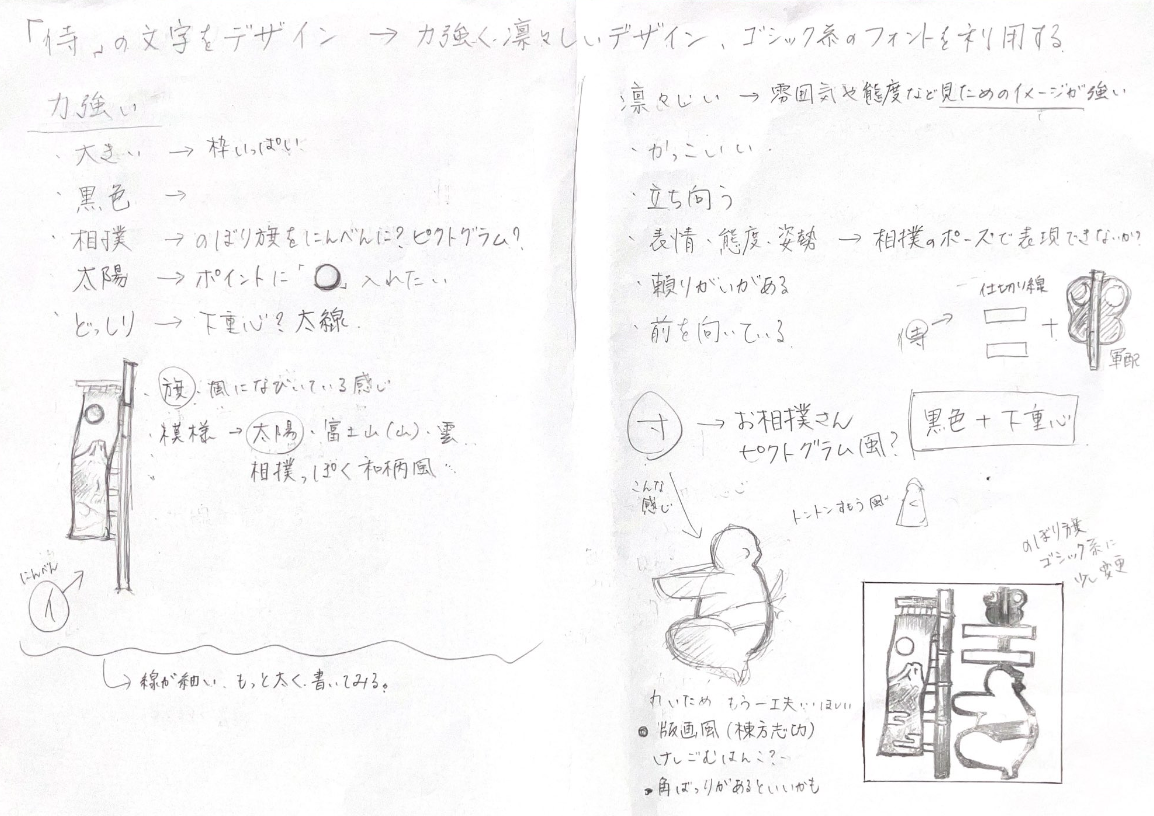 「侍」の文字をデザイン → 力強く凛々しいデザイン、ゴシック系のフォントを利用する
力強い
・大きい → 枠いっぱい
・黒色 →
・相撲 → のぼり旗をにんべんに?ピクトグラム?
・太陽 → ポイントに「○」入れたい
・どっしり → 下重心?太線
・旗・風になびいている感じ
・模様 → 太陽・富士山(山)・雲
相撲っぽく和柄風
にんべん
イ
線が細い、もっと太く書いてみる。
凛々しい → 雰囲気や態度など見ためのイメージが強い
・かっこいい
・立ち向う
・表情・態度・姿勢 → 相撲のポーズで表現できないか?
・頼りがいがある
・前を向いている
侍 →
仕切り線
+
軍配
寸 → お相撲さん
ピクトグラム風?
黒色+下重心
こんな
感じ
トントンすもう風
のぼり旗
ゴシック系に
少し変更
もう一工夫ほしい
版画風(棟方志功)
けしごむはんこ?
角ばりがあるといいかも